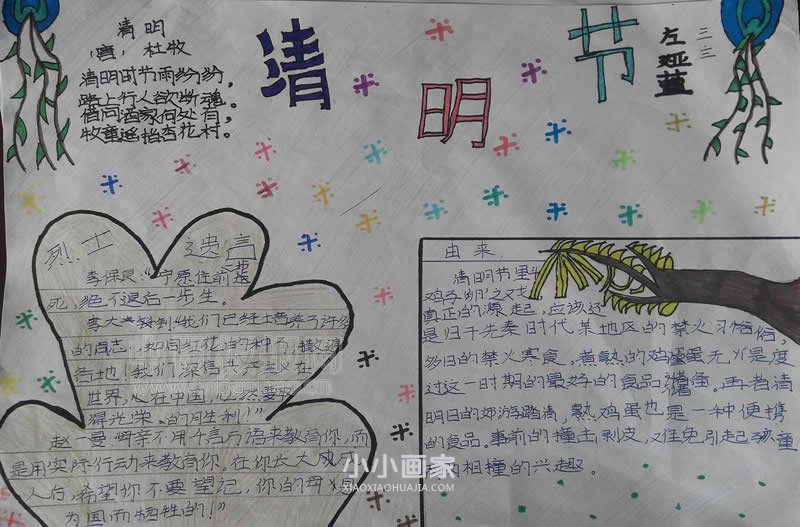 清明
唐，杜牧
清明时节雨纷纷，
路上行人欲断魂。
借问酒家何处有，
牧童遥指杏花村。
清明节
三
烈士遗言
李保良："宁原往前进
死，绝不退后一步生。
李大钊："我们已经培养了许多
的同志，如同红花的种子撒遍
各地！我们深信共产主义在
世界，在中国，必然要
得光荣的胜利！"
赵一曼："母亲不用千言万语来教育你，而
是用实际行动来教育你。在你长大成
人后，希望你不要望记，你的母
为国而牺牲的！"
由来
清明节里
鸡子
真正的源起，应该还
是归于先秦时代某地区的禁火习俗，
多日的禁火寒食，煮熟的鸡蛋无火是度
过这一时期的最好的食品储备。再者清
明日的郊游踏清，熟鸡蛋也是一种便携
的食品。事前的撞土剥皮，难免引起孩童
相撞的兴趣。
小小画家
XIAOXIAOHUAJIA.COM